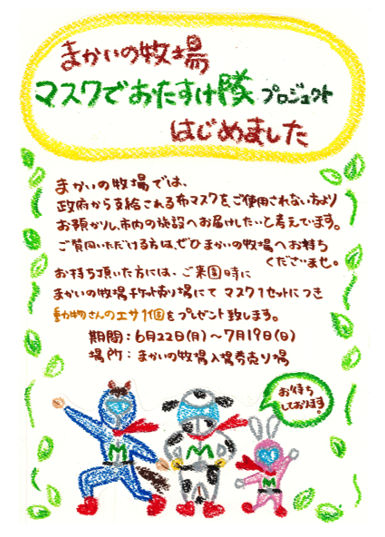 まかいの牧場
マスクでおたすけ隊 プロジェクト
はじめました
まかいの牧場では、
政府から支給される布マスクをご使用されない方より
お預かりし、市内の施設へお届けしたいと考えています。
ご賛同いただける方は、ぜひまかいの牧場へお持ち
くださいませ。
お持ち頂いた方には、ご来園時に
まかいの牧場チケット売り場にて マスク1セットにつき
動物さんのエサ1個をプレゼント致します。
期間：6月22日(月)～7月19日(日)
場所：まかいの牧場入場券売り場
お待ち
しております。
M
M
M